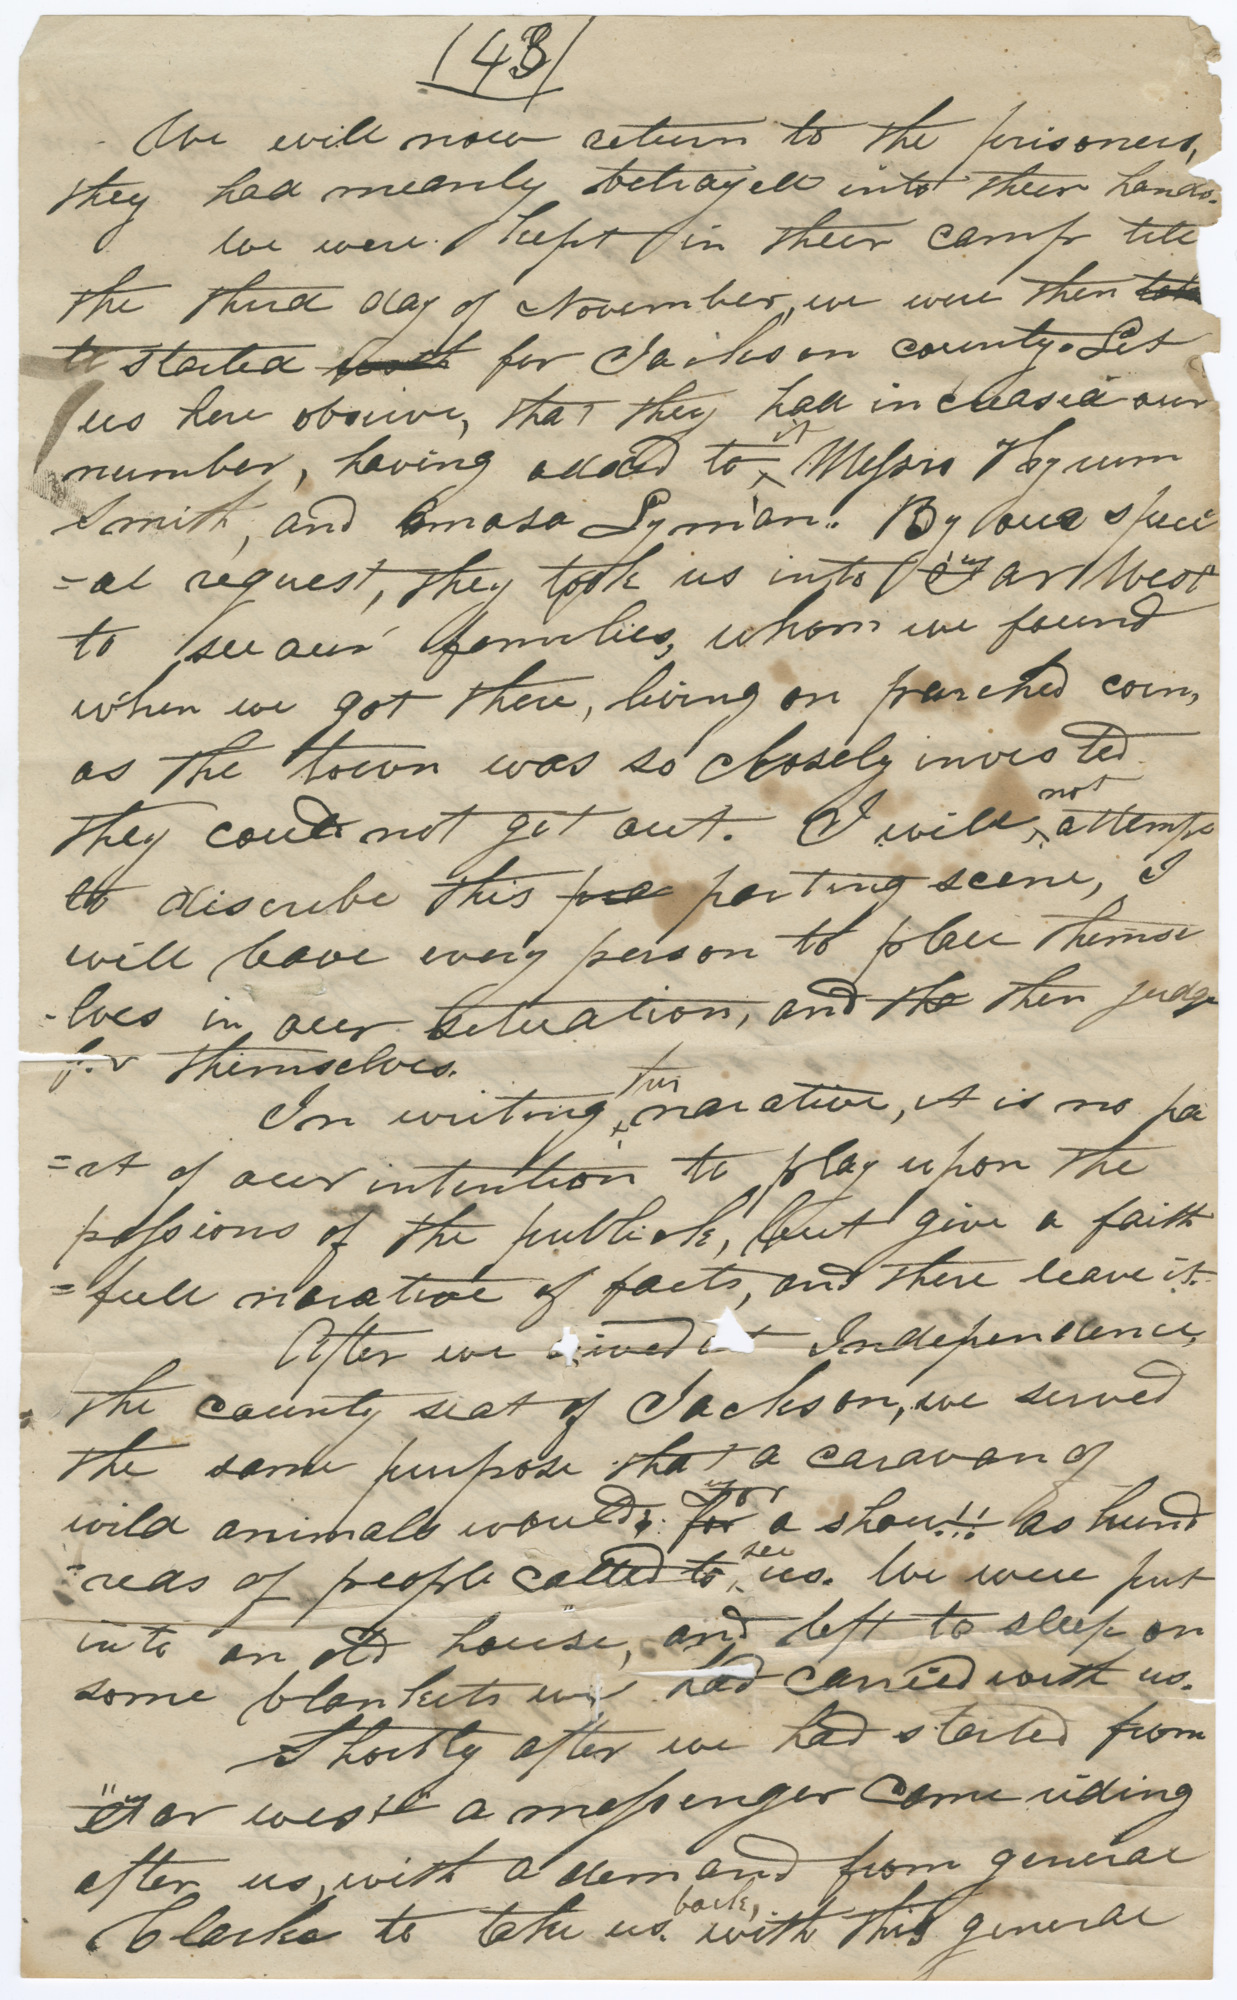 (43)
We will now return to the prisoners,
they had meanly betrayed into their hands.
We were kept in their camp till
the third day of November, we were then
started for Jackson county. Let
us here observe, that they had increased our
number, having added to it Messrs Hyrum
Smith, and Amasa Lyman. By our speci
=al request, they took us into Far West
to see our families, whom we found
when we got there, living on parched corn,
as the town was so closely invested
they could not get out. I will not attempt
to discribe this parting scene, I
will leave every person to place themse
-lves in our situation, and the then judge
for themselves.
In writing this narative, it is no pa
=rt of our intention to play upon the
passions of the publick, but give a faith
=full narative of facts, and there leave it.
After we arived at Independence,
the county seat of Jackson, we served
the same purpose that a caravan of
wild animals would, for for a show!! as hund
=reds of people called to see us. We were put
into an old house, and left to sleep on
some blankets we had carried with us.
Shortly after we had started from
"Far west" a messenger came riding
after us, with a demand from general
Clarke to take us back, with this general